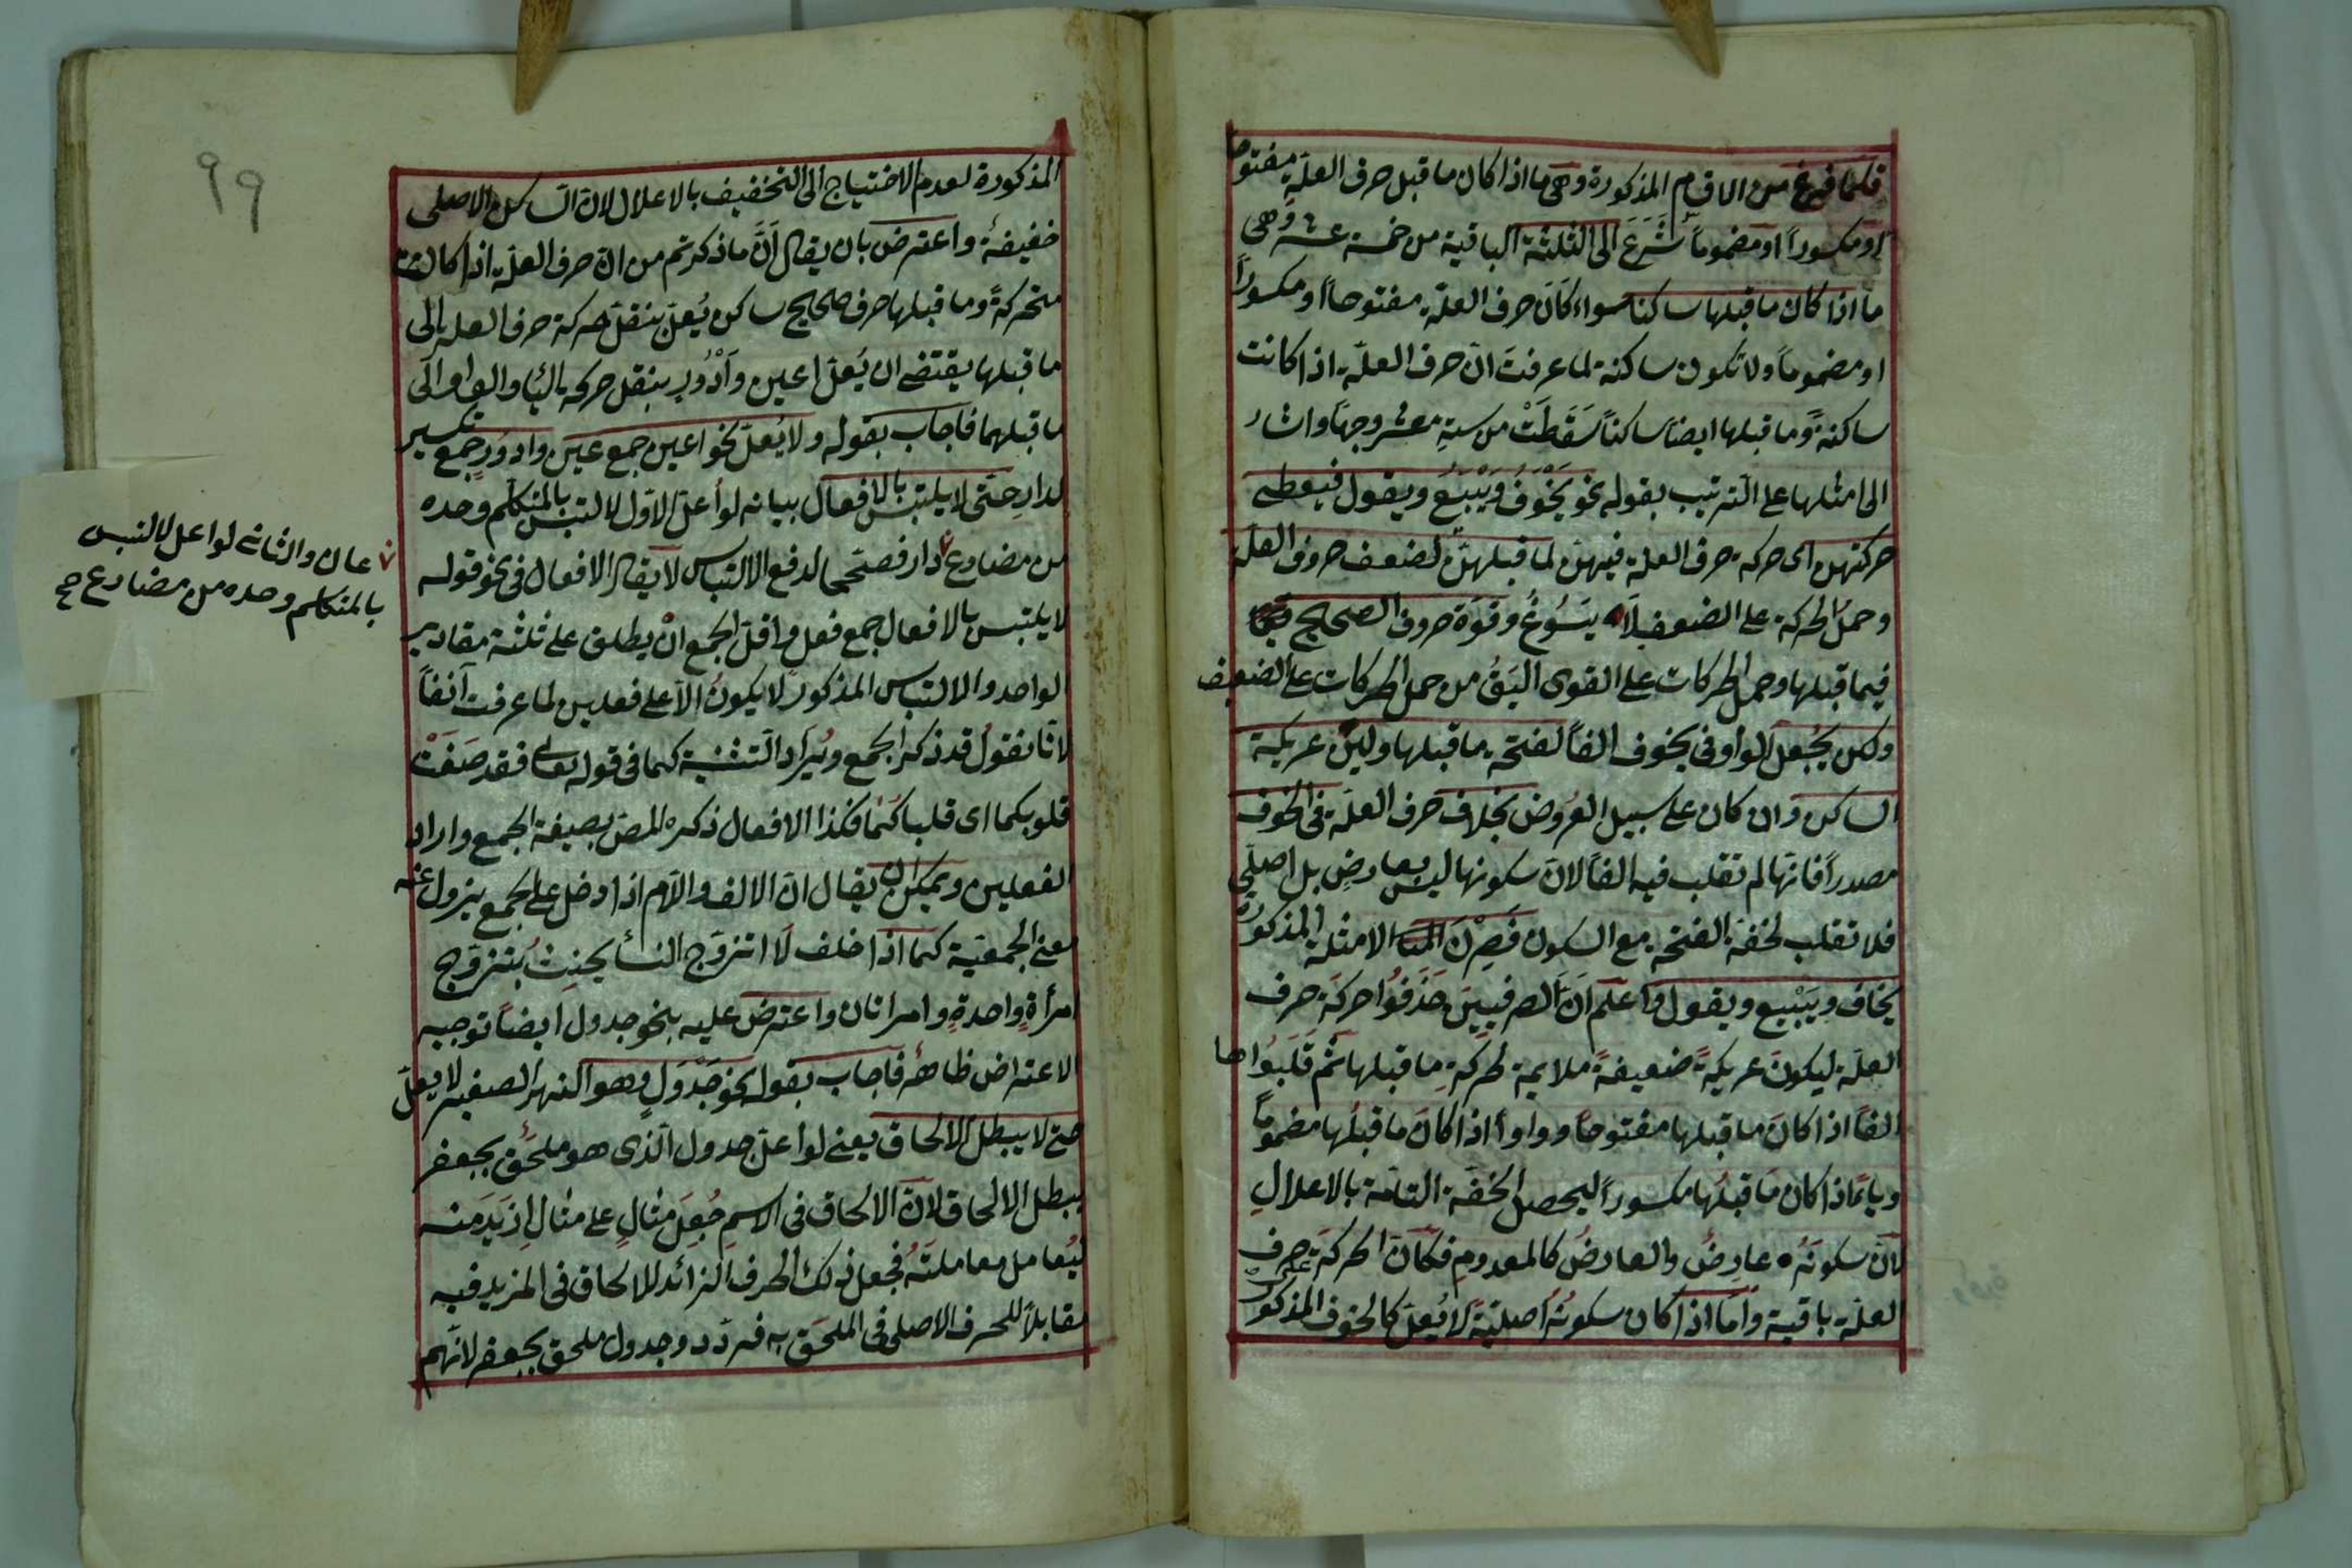 فلما فرغ من الاقسام المذكورة وهى ما اذا كان ما قبل حرف العلة مفتوحا
او مكسوراً او مضموماً شَرَعَ الى الثلثة الباقية من خمسة عشر وهى
ما اذا كان ما قبلها ساكنا سواء كان حرف العلة مفتوحاً او مكسوراً
او مضموماً ولا تكون ساكنة لما عرفت ان حرف العلّة اذا كانت
ساكنة وما قبلها ايضا ساكناً سَقَطَتْ من ستة عشر وجهاً واشار
الى امثلها على الترتيب بقوله نحو يَخْوَفُ ويَبْيِعُ ويقول فيعطى
حركتهن اى حركة حرف العلة فيهن لما قبلهنّ لضعف حروف العلة
وحمل الحركة على الضعف لا يَسُوغُ وقوّة حروف الصحيح
فيما قبلها وحمل الحركات على القوى اليَقُ من حمل الحركات على الضعيف
ولكن يُجعل الواو فى يخوف الفاً لفتحة ما قبلها ولين عريكة
الساكن وان كان على سبيل العُروض بخلاف حرف العلّة فى الخوف
مصدراً فانها لم تقلب فيه الفاً لان سكونها ليس بعارض بل اصلى
فلا تقلب لخفة الفتحة مع السكون فَصِرْنَ الامثلة المذكورة
يخاف ويَبْيع ويقول واعلم ان الصرفيين حَذَفُوا حركة حرف
العلّة ليكون عريكةً ضعيفةً ملايمة لحركةِ ما قبلها ثم قَلَبُواها
الفاً اذا كانَ ما قبلها مفتوحاً وواواً اذا كانَ ما قبلُها مضموماً
وياءً اذا كان ما قبلُها مكسوراً ليحصل الخفة التامّة بالاعلالِ
لانّ سكونَه عارِضٌ والعارضُ كالمعدومِ فكانّ الحركةَ على حرف
العلّة باقية وامّا اذا كان سكونُه اصليّةً لا يُعلّ كالخوف المذكور
المذكورة لعدم الاحتياج الى التخفيف بالاعلال لان الساكن الاصلى
خفيفة واعترض بان يقال انّ ما ذكرتم من ان حرف العلّة اذا كانت
متحركةً وما قبلها حرف صحيح ساكن يُعلّ بنقل حركة حرف العلة الى
ما قبلها يقتضى ان يُعلّ اعين وأَدْوُر بنقل حركة الياء والواو الى
ما قبلهما فاجاب بقوله ولا يُعلّ نحو اعين جمع عين وادوُرٍ جمع تكسير
لدارٍ حتى لا يلتبس بالافعال بيانه لو أعلّ الاوّل لالتبس بالمتكلم وحده
من مضارع دار فصحتحا لدفع الالتباس لا يقال الافعال فى نحو قوله
لا يلتبس بالافعال جمع فعل واقلّ الجمع انْ يطلق على ثلثة مقادير
الواحد والالتباس المذكور لا يكونُ الا على فعلين لما عرفت آنفاً
لانا نقول قد ذكر الجمع ويُراد التثنية كما فى قوله تعالى فقد صَغَتْ
قلوبكما اى قلباكما فكذا الافعال ذكره المص بصيغة الجمع واراد
الفعلين ويمكن ان يقال ان الالف واللام اذا دخل على الجمع يزول عنه
معنى الجمعيّة كما اذا حلف لا اتزوّج النساء يحنِثُ بتزوّج
امرأةٍ واحدةٍ وامراتان واعترض عليه بنحو جدول ايضاً توجيه
الاعتراض ظاهر فاجاب بقوله نحو جَدْوَلٍ وهو النهر الصغير لا يعلّ
حتى لا يبطل الالحاق يعنى لو أعلّ جدول الّذى هو ملحَق بجعفر
يبطل الالحاق لانّ الالحاق فى الاسم جُعِلَ مثالٍ على مثالٍ ازيَد منه
ليُعامل معاملتَه فجعل ذلك الحرف الزائد للالحاق فى المزيد فيه
مقابلاً للحرف الاصلى فى الملحَق به فردد وجدول ملحق بجعفر لانّهم
عان والثانى لو اعل لالتبس
بالمتكلم وحده من مضارع صح
٩٩